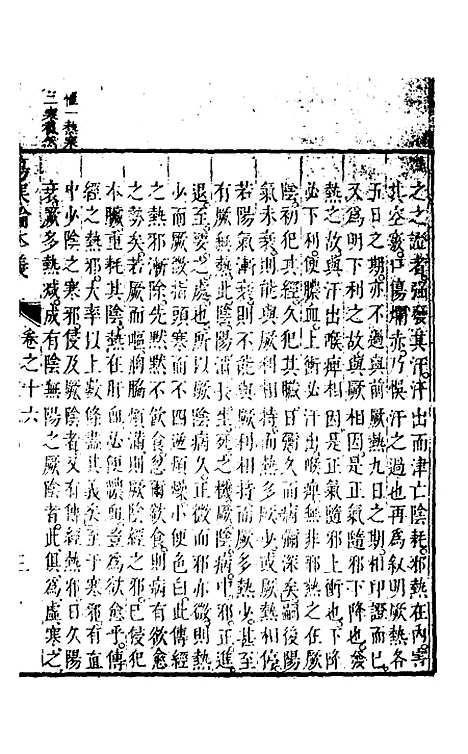 惟一熱寒
之之證者強發其汗汗出而津亡陰耗邪熱在內害
其空竅口傷爛赤乃悞汗之過也再爲叙明厥熱各
五日之期亦不過與前厥熱九日之期相印證而已
又爲明下利之故與厥相因是正氣隨邪下降也發
熱之故與汗出喉痺相因是正氣隨邪上衝也下降
必下利便膿血上衝必汗出喉痺無非邪熱之在厥
陰初犯其經久犯其裏熱一日在則病一日深矣嗣後陽
氣未衰則能與厥利相持而熱多厥少或熱與厥停
若陽氣漸衰則不能與厥利相持而厥多熱少甚至
有厥無熱邪正進退陰陽消長生死之機厥陰一經
退至要之處也所以厥陰病久正微而邪亦微則熱
少而厥微指頭寒而不四逆煩燥小便色白此傳經
之熱邪漸除先默默不欲飲食忽爾欲食則病有欲愈
之兆矣若厥而嘔胸脇煩滿則傳經之邪已侵犯
本臟重耗其陰之肝血必便膿血豈爲欲愈乎傳
經之熱邪大率以上數條盡其義矣至于寒邪有直
中少陰之寒邪侵及厥陰者又有傳經熱邪日久陽
衰厥多熱減成有陰無陽之厥陰者此俱爲虛寒之
傷寒論本義
卷之十六